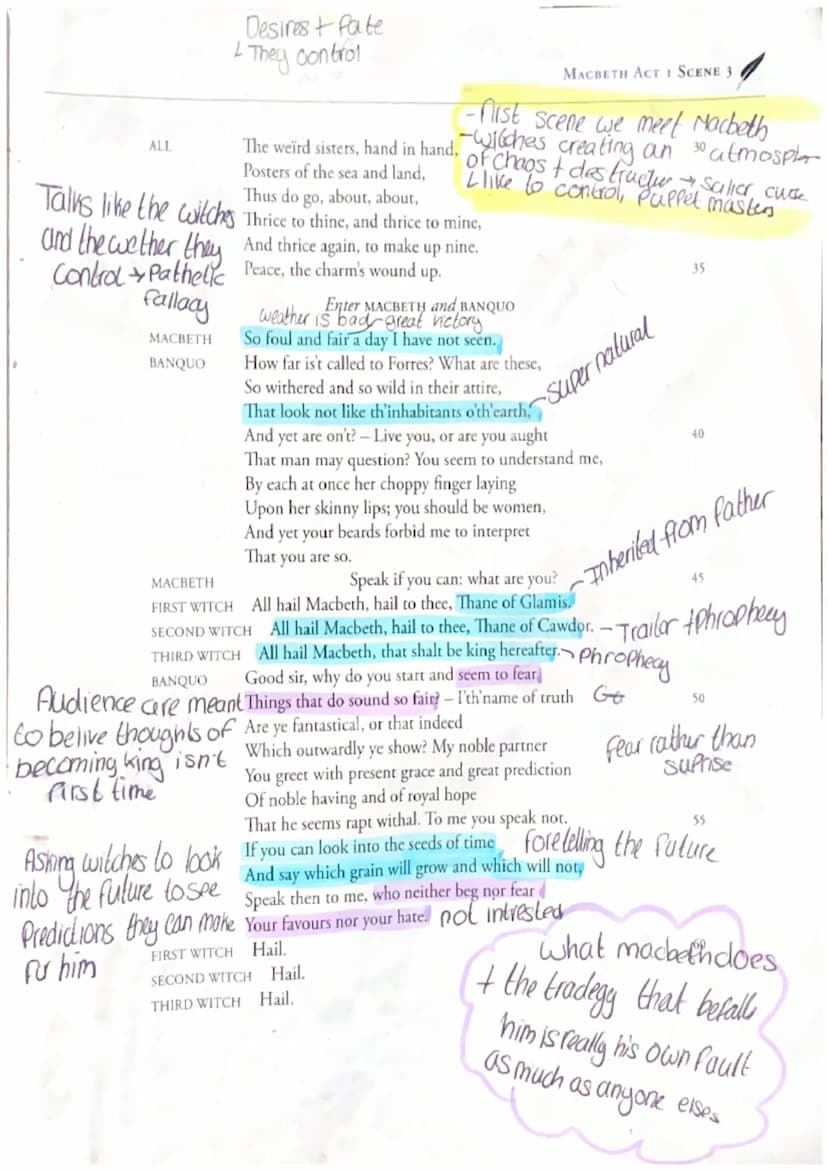 Desires + fate
↳ They control
MACBETH ACT 1 SCENE 3
- first scene we meet Macbeth
- witches creating an atmospher
of chaos + destructur → salior curse
↳ like to control, puppet masters
30
ALL The weïrd sisters, hand in hand,
Posters of the sea and land,
Thus do go, about, about,
Thrice to thine, and thrice to mine,
And thrice again, to make up nine.
Peace, the charm's wound up. 35
Talks like the witches
and the wether they
control → Pathetic
fallacy
Enter MACBETH and BANQUO
weather is bad - great victory
MACBETH So foul and fair a day I have not seen.
BANQUO How far is't called to Forres? What are these,
So withered and so wild in their attire,
That look not like th'inhabitants o'th'earth,
super natural
And yet are on't? – Live you, or are you aught 40
That man may question? You seem to understand me,
By each at once her choppy finger laying
Upon her skinny lips; you should be women,
And yet your beards forbid me to interpret
That you are so.
MACBETH Speak if you can: what are you? 45
FIRST WITCH All hail Macbeth, hail to thee, Thane of Glamis.
Inherited from father
SECOND WITCH All hail Macbeth, hail to thee, Thane of Cawdor. – Traitor + phrophecy
THIRD WITCH All hail Macbeth, that shalt be king hereafter. Phrophecy
BANQUO Good sir, why do you start and seem to fear
Things that do sound so fair? – I'th'name of truth 50
Are ye fantastical, or that indeed
Which outwardly ye show? My noble partner
You greet with present grace and great prediction
Of noble having and of royal hope
That he seems rapt withal. To me you speak not. 55
Audience are meant
to belive thoughts of
becoming king isn't
first time
fear rather than
suprise
If you can look into the seeds of time
foretelling the future
And say which grain will grow and which will not,
Speak then to me, who neither beg nor fear
Your favours nor your hate. not intrested
Asking witches to look
into the future to see
Predictions they can make
for him
FIRST WITCH Hail.
SECOND WITCH Hail.
THIRD WITCH Hail.
What macbeth does
+ the tradegy that befalls
him is really his own fault
as much as anyone elses